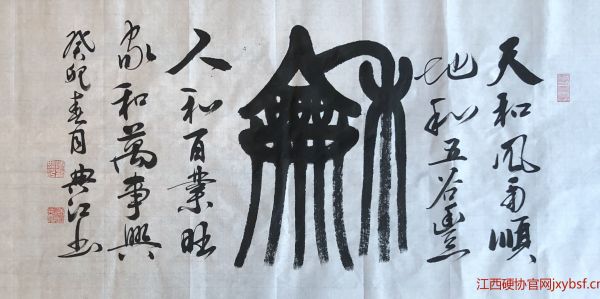 天和風雨順
地和五谷豐
龢
人和百業旺
家和萬事興
癸卯春月典江书
江西硬协官网jxybsf.cn